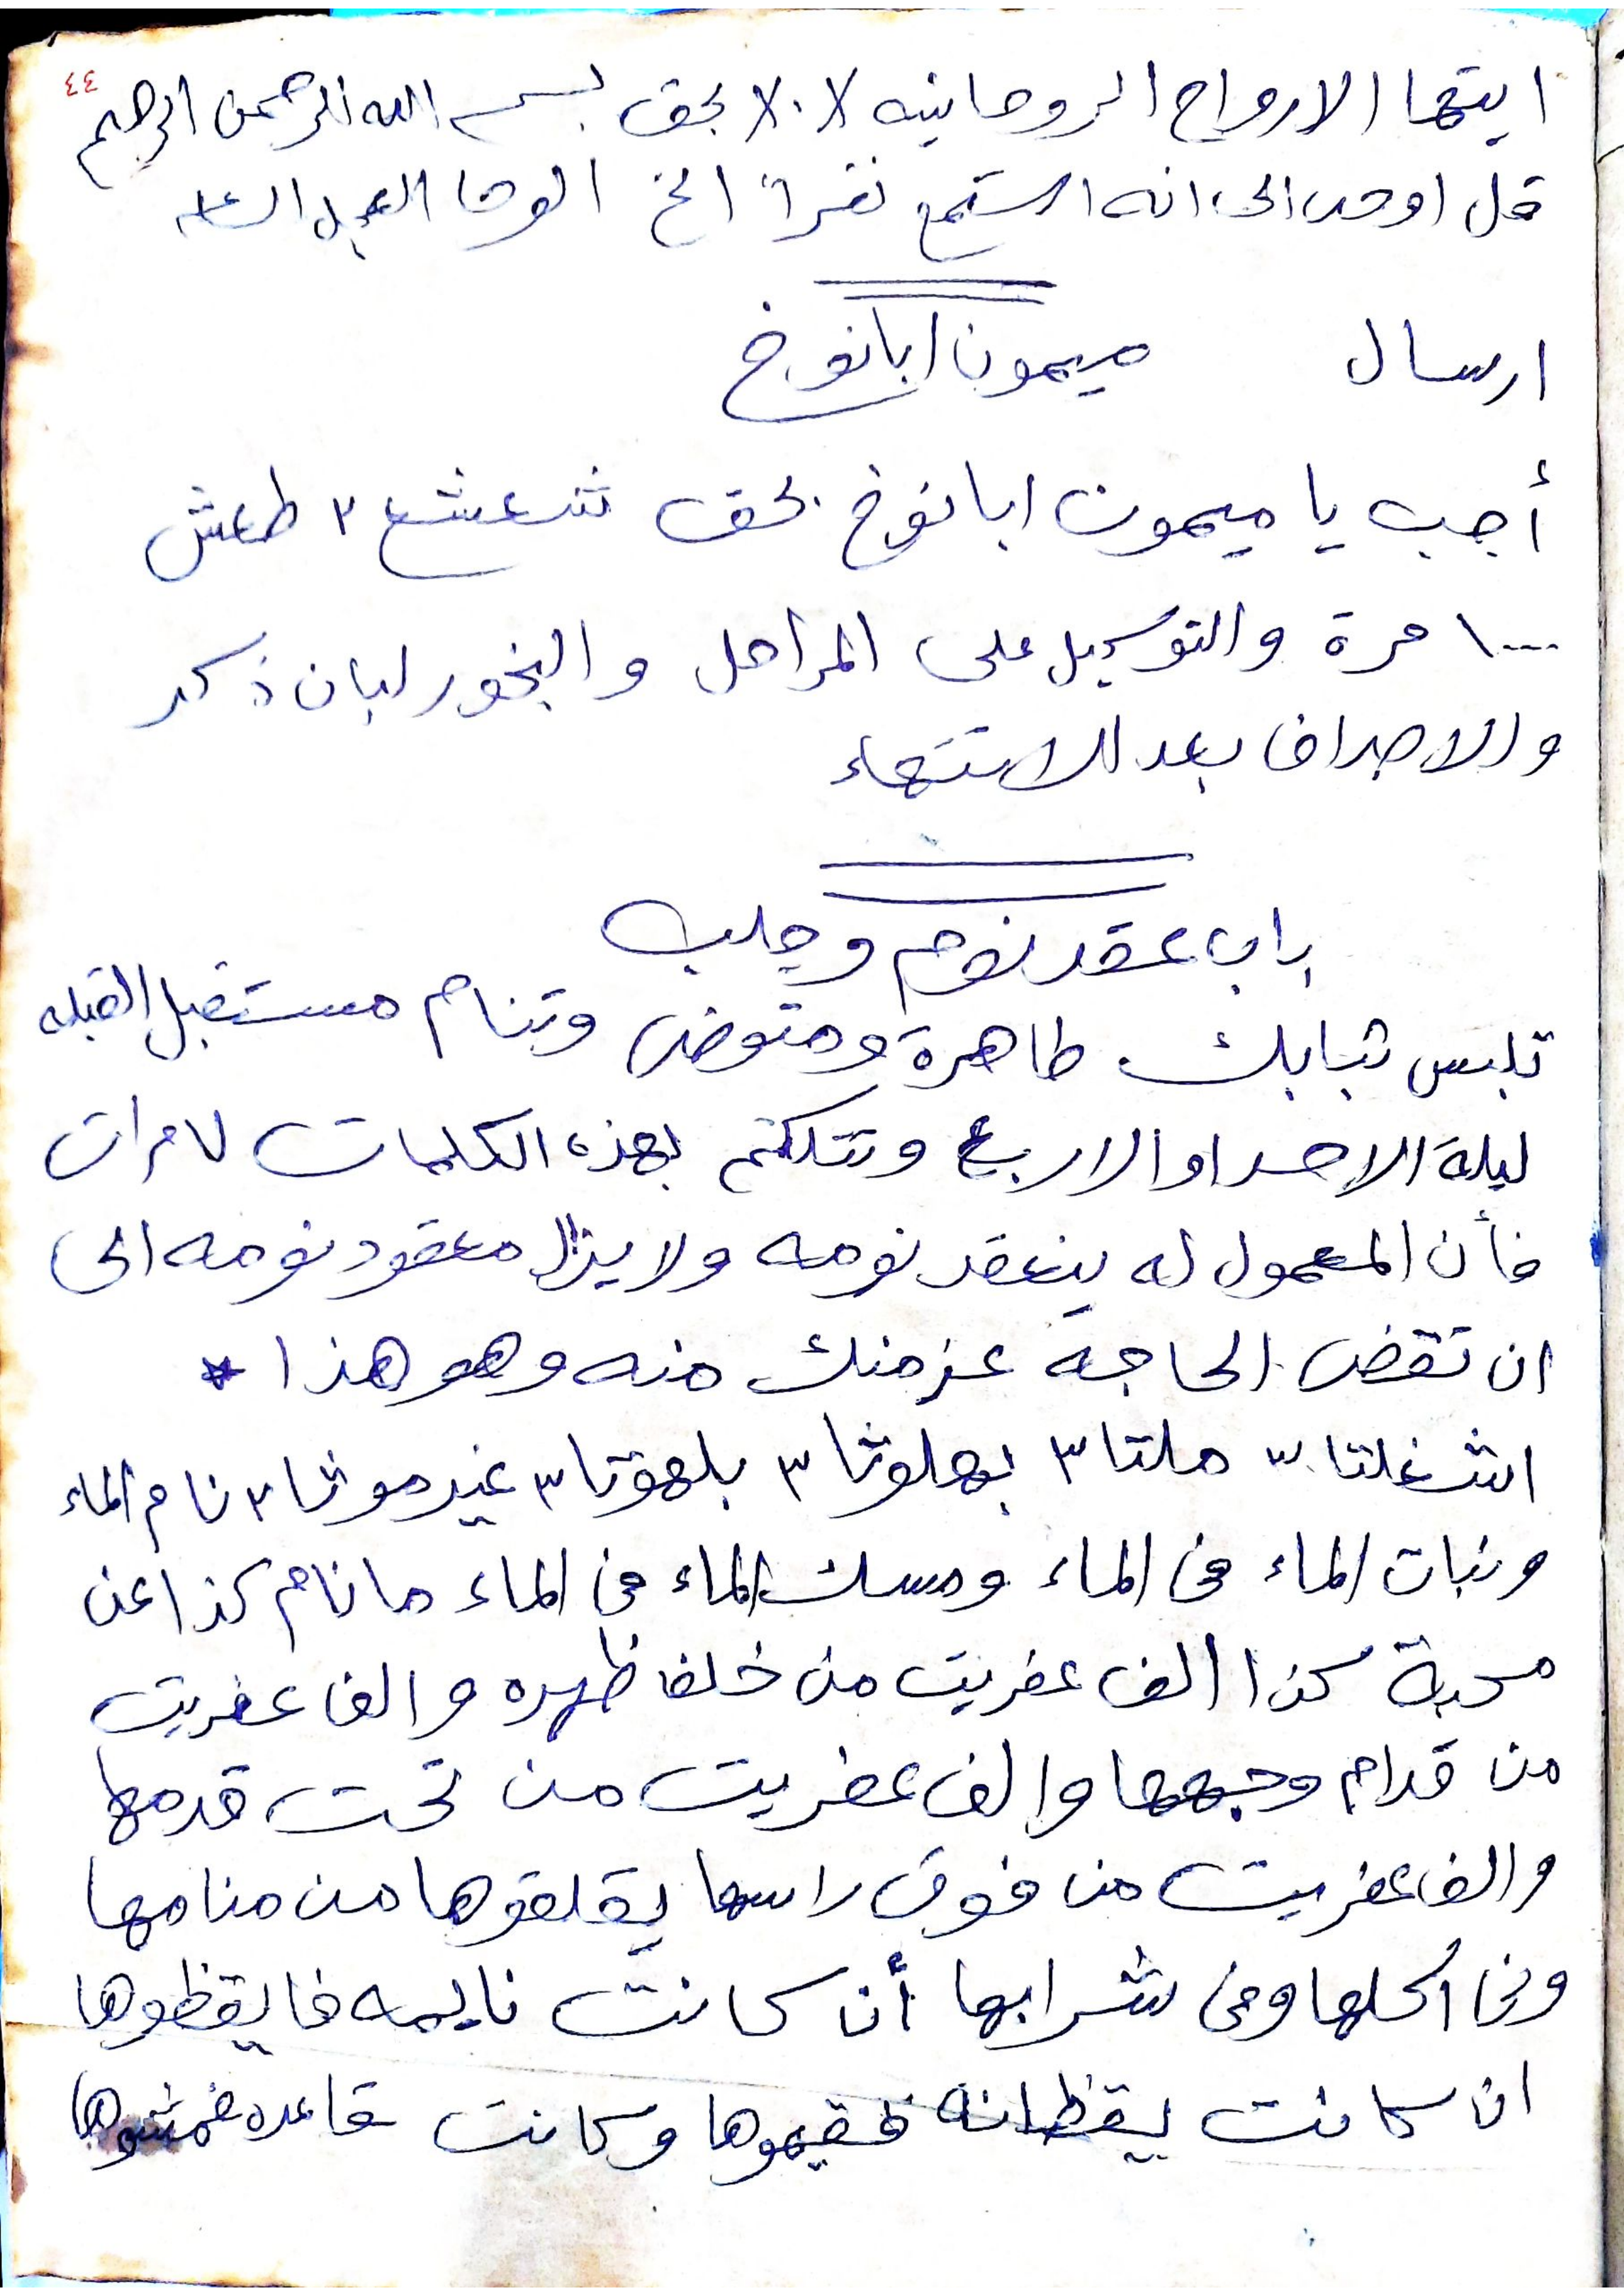 ٤٤
ايتها الارواح الروحانيه بحق بسم الله الرحمن الرحيم
قل اوحى الى انه استمع نفراً الخ الوحا العجل الساعه
ارسال ميمون ابانوخ
أجب يا ميمون ابانوخ بحق شعشع ٣ طعش
١٠٠٠ مرة والتوكيل على المراحل والبخور لبان ذكر
والاصراف بعد الانتهاء
باب عقد نوم وجلب
تلبس ثيابك طاهرة ومتوضى وتنام مستقبل القبله
ليلة الاحد او الاربع وتتكلم بهذه الكلمات ٧ مرات
فأن المعمول له ينعقد نومه ولا يزال معقود نومه الى
ان تقضى الحاجه غرضك منه وهو هذا *
اشغلتا ٣ ملتا ٣ بهلوثا ٣ بلهوتا ٣ غيدموثا ٣ نام الماء
ونبات الماء فى الماء ومسك الماء فى الماء ما نام كذا عن
محبة كذا الف عفريت من خلف ظهره والف عفريت
من قدام وجهها والف عفريت من تحت قدمها
والف عفريت من فوق راسها يقلقوها من منامها
وفى اكلها وفى شرابها أن كانت نايمه فايقظوها
ان كانت يقظانه فقيموها وكانت قاعده فمشوها